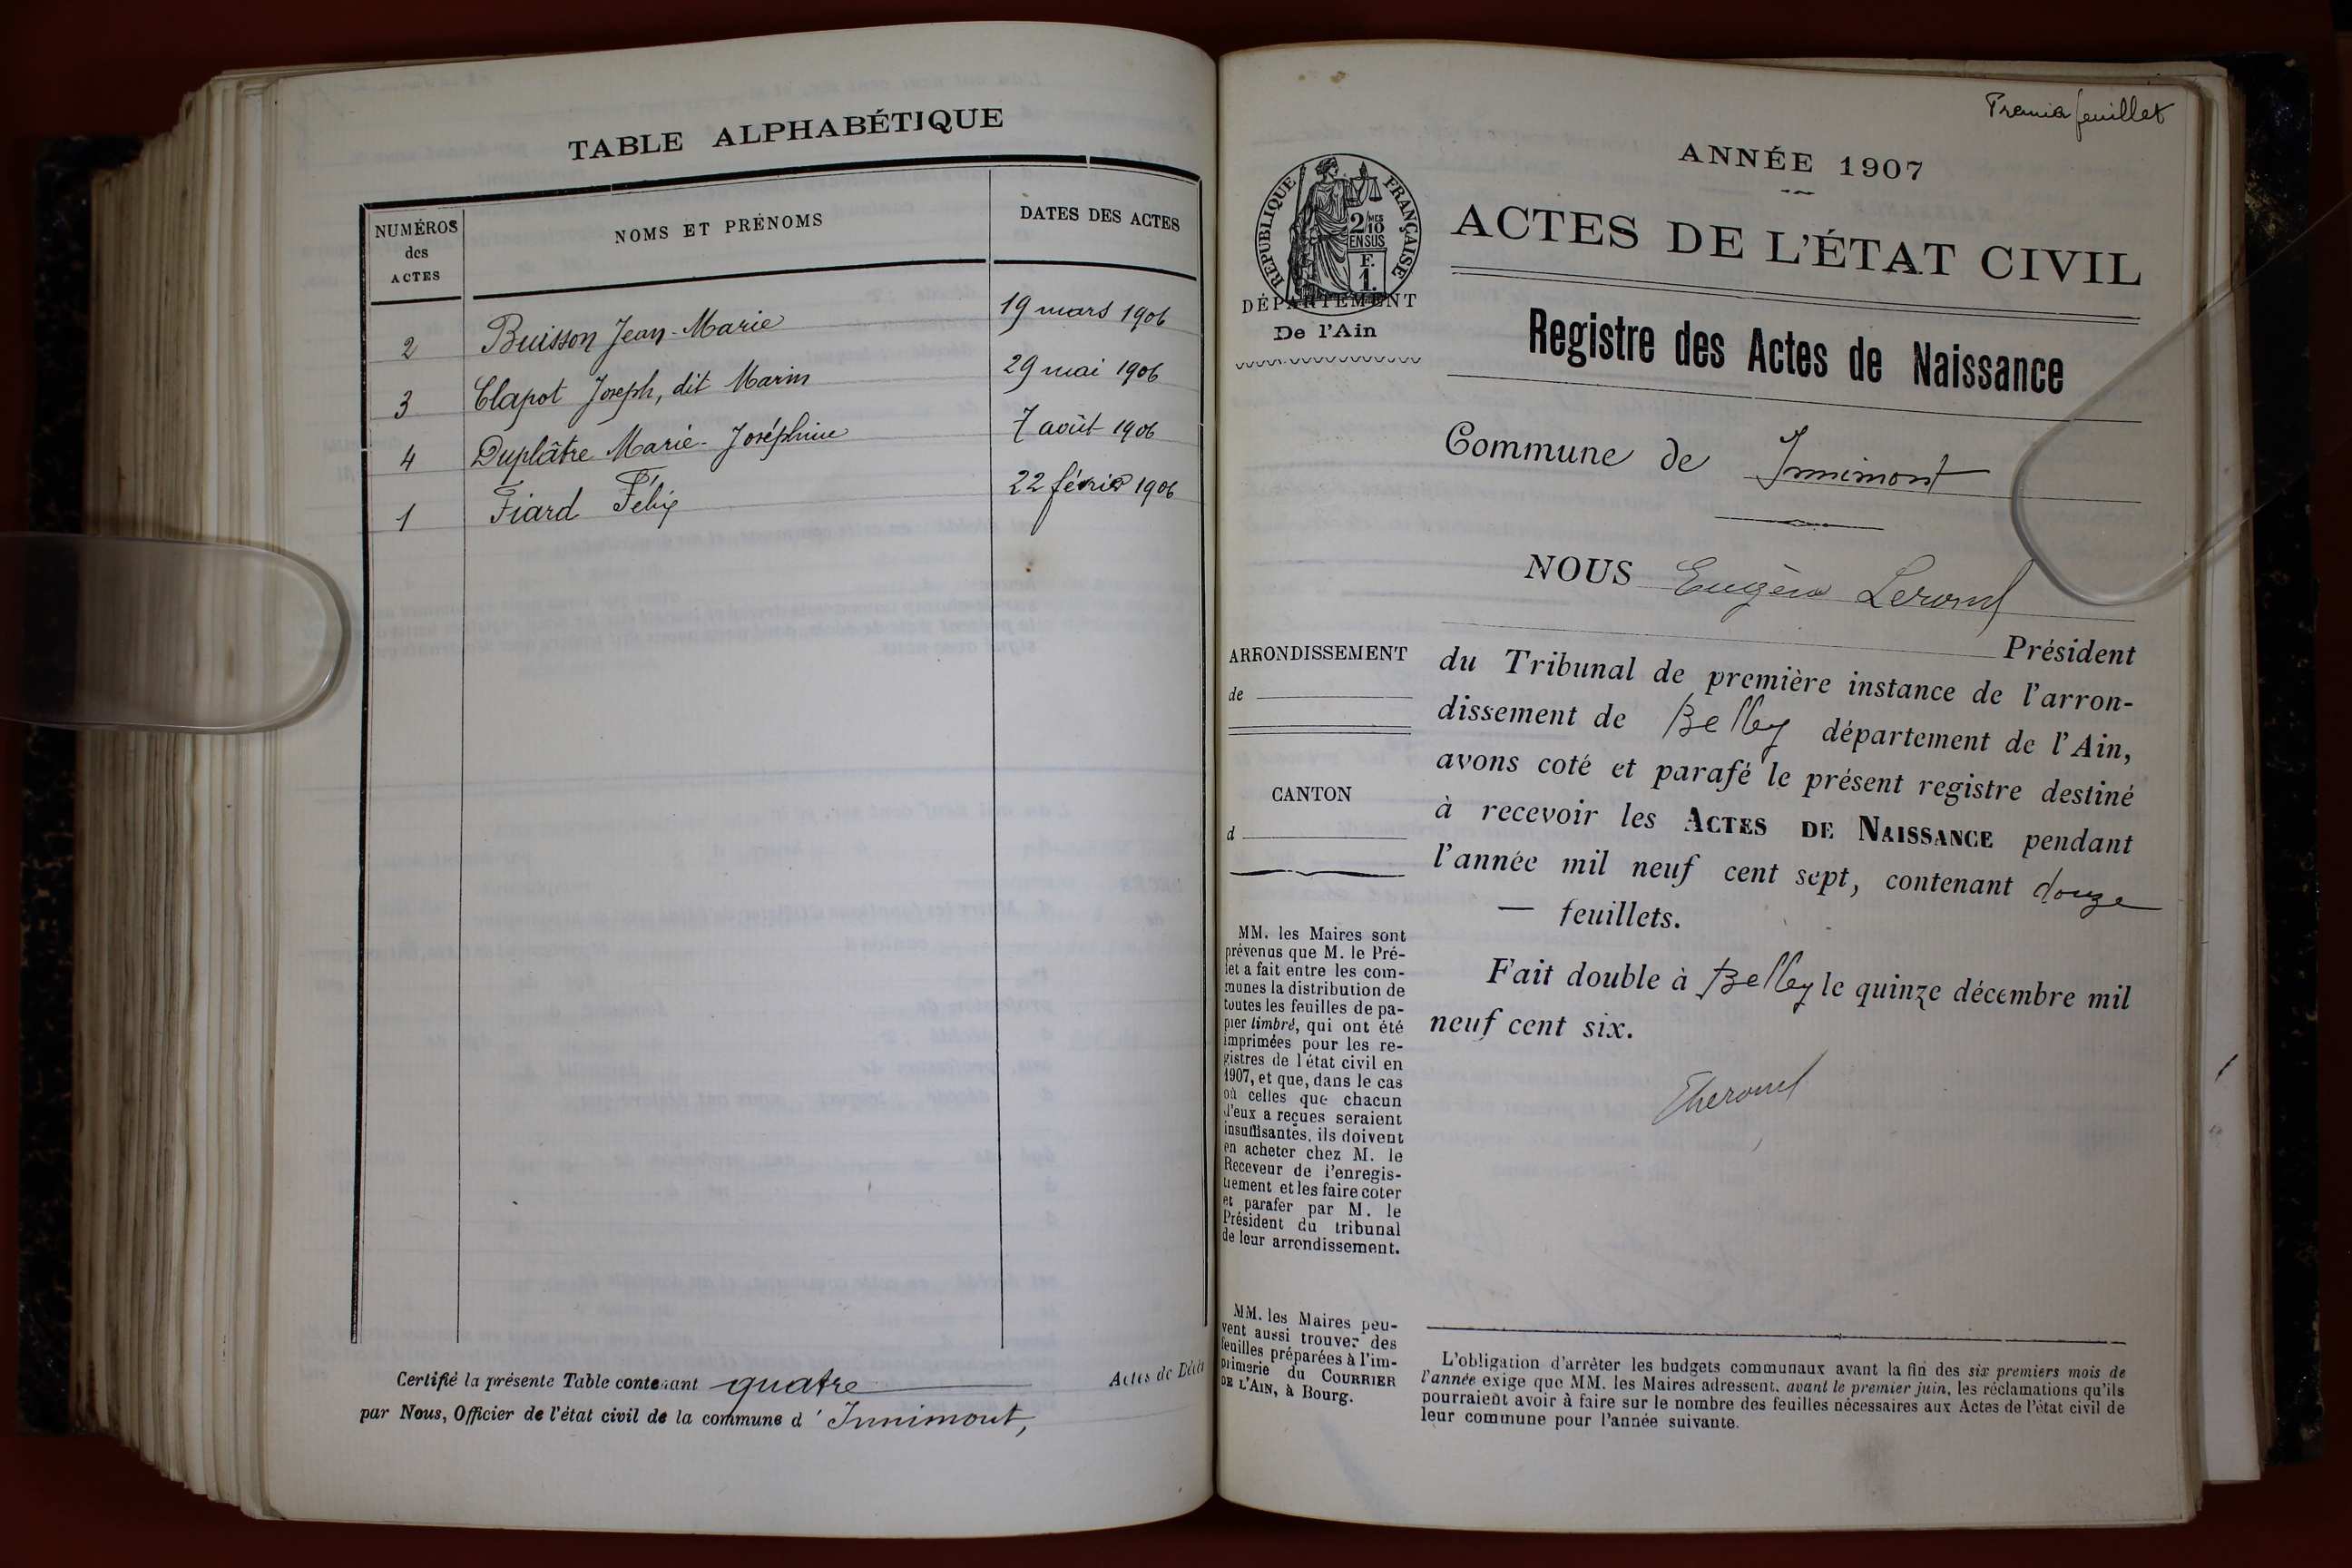 TABLE ALPHABÉTIQUE
NUMÉROS
des
ACTES
NOMS ET PRÉNOMS
DATES DES ACTES
2 Buisson Jean-Marie 19 mars 1906
3 Clapot Joseph, dit Marin 29 mai 1906
4 Duplâtre Marie-Joséphine 7 août 1906
1 Fiard Félix 22 février 1906
Certifié la présente Table contenant quatre Actes de Décès
par Nous, Officier de l'état civil de la commune d'Innimont,
Premier feuillet
RÉPUBLIQUE FRANÇAISE
2/10 MES
EN SUS
F.
1.
DÉPARTEMENT
De l'Ain
ANNÉE 1907
ACTES DE L'ÉTAT CIVIL
Registre des Actes de Naissance
Commune de Innimont
NOUS Eugène
Président
du Tribunal de première instance de l'arron-
dissement de Belley département de l'Ain,
avons coté et parafé le présent registre destiné
à recevoir les ACTES DE NAISSANCE pendant
l'année mil neuf cent sept, contenant douze
— feuillets.
Fait double à Belley le quinze décembre mil
neuf cent six.
ARRONDISSEMENT
de
CANTON
d
MM. les Maires sont
prévenus que M. le Pré-
fet a fait entre les com-
munes la distribution de
toutes les feuilles de pa-
pier timbré, qui ont été
imprimées pour les re-
gistres de l'état civil en
1907, et que, dans le cas
où celles que chacun
d'eux a reçues seraient
insuffisantes, ils doivent
en acheter chez M. le
Receveur de l'enregis-
trement et les faire coter
et parafer par M. le
Président du tribunal
de leur arrondissement.
MM. les Maires peu-
vent aussi trouver des
feuilles préparées à l'im-
primerie du COURRIER
DE L'AIN, à Bourg.
L'obligation d'arrêter les budgets communaux avant la fin des six premiers mois de
l'année exige que MM. les Maires adressent, avant le premier juin, les réclamations qu'ils
pourraient avoir à faire sur le nombre des feuilles nécessaires aux Actes de l'état civil de
leur commune pour l'année suivante.